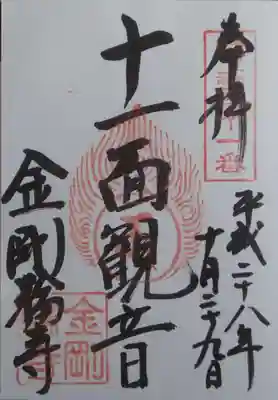 奉拝
平成二十八年
十月二十九日
十一面観音
金剛福寺
金剛